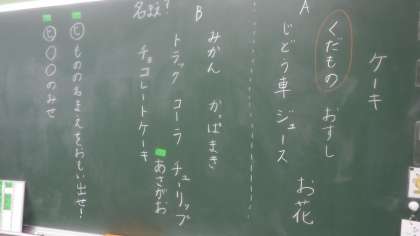 ケーキ
A
くだもの おすし
じどう車 ジュース お花
B
みかん かっぱまき
トラック コーラ チューリップ
名まえ?
チョコレートケーキ あさがお
もののなまえをおもい出せ!
〇〇のみせ